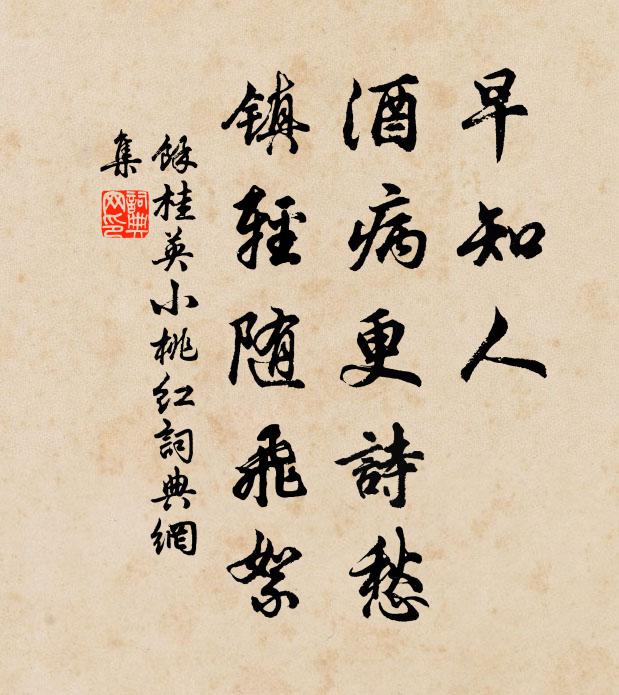 早知人
酒病更詩愁
鎮輕随飛絮
餘桂英小桃紅詞典網
集
詞典
网印